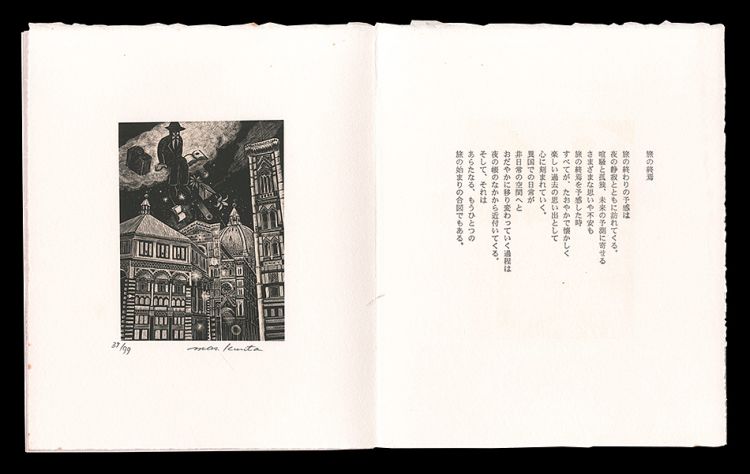 旅の終焉
旅の終わりの予感は
夜の静寂とともに訪れてくる。
喧騒と孤独、未来の予測に寄せる
さまざまな思いや不安も
旅の終焉を予感した時
すべてが、たおやかで懐かしく
楽しい過去の思い出として
心に刻まれていく。
異国での日常が
非日常の空間へと
おだやかに移り変わっていく過程は
夜の帳のなかから近付いてくる。
そして、それは
あらたなる、もうひとつの
旅の始まりの合図でもある。
/99